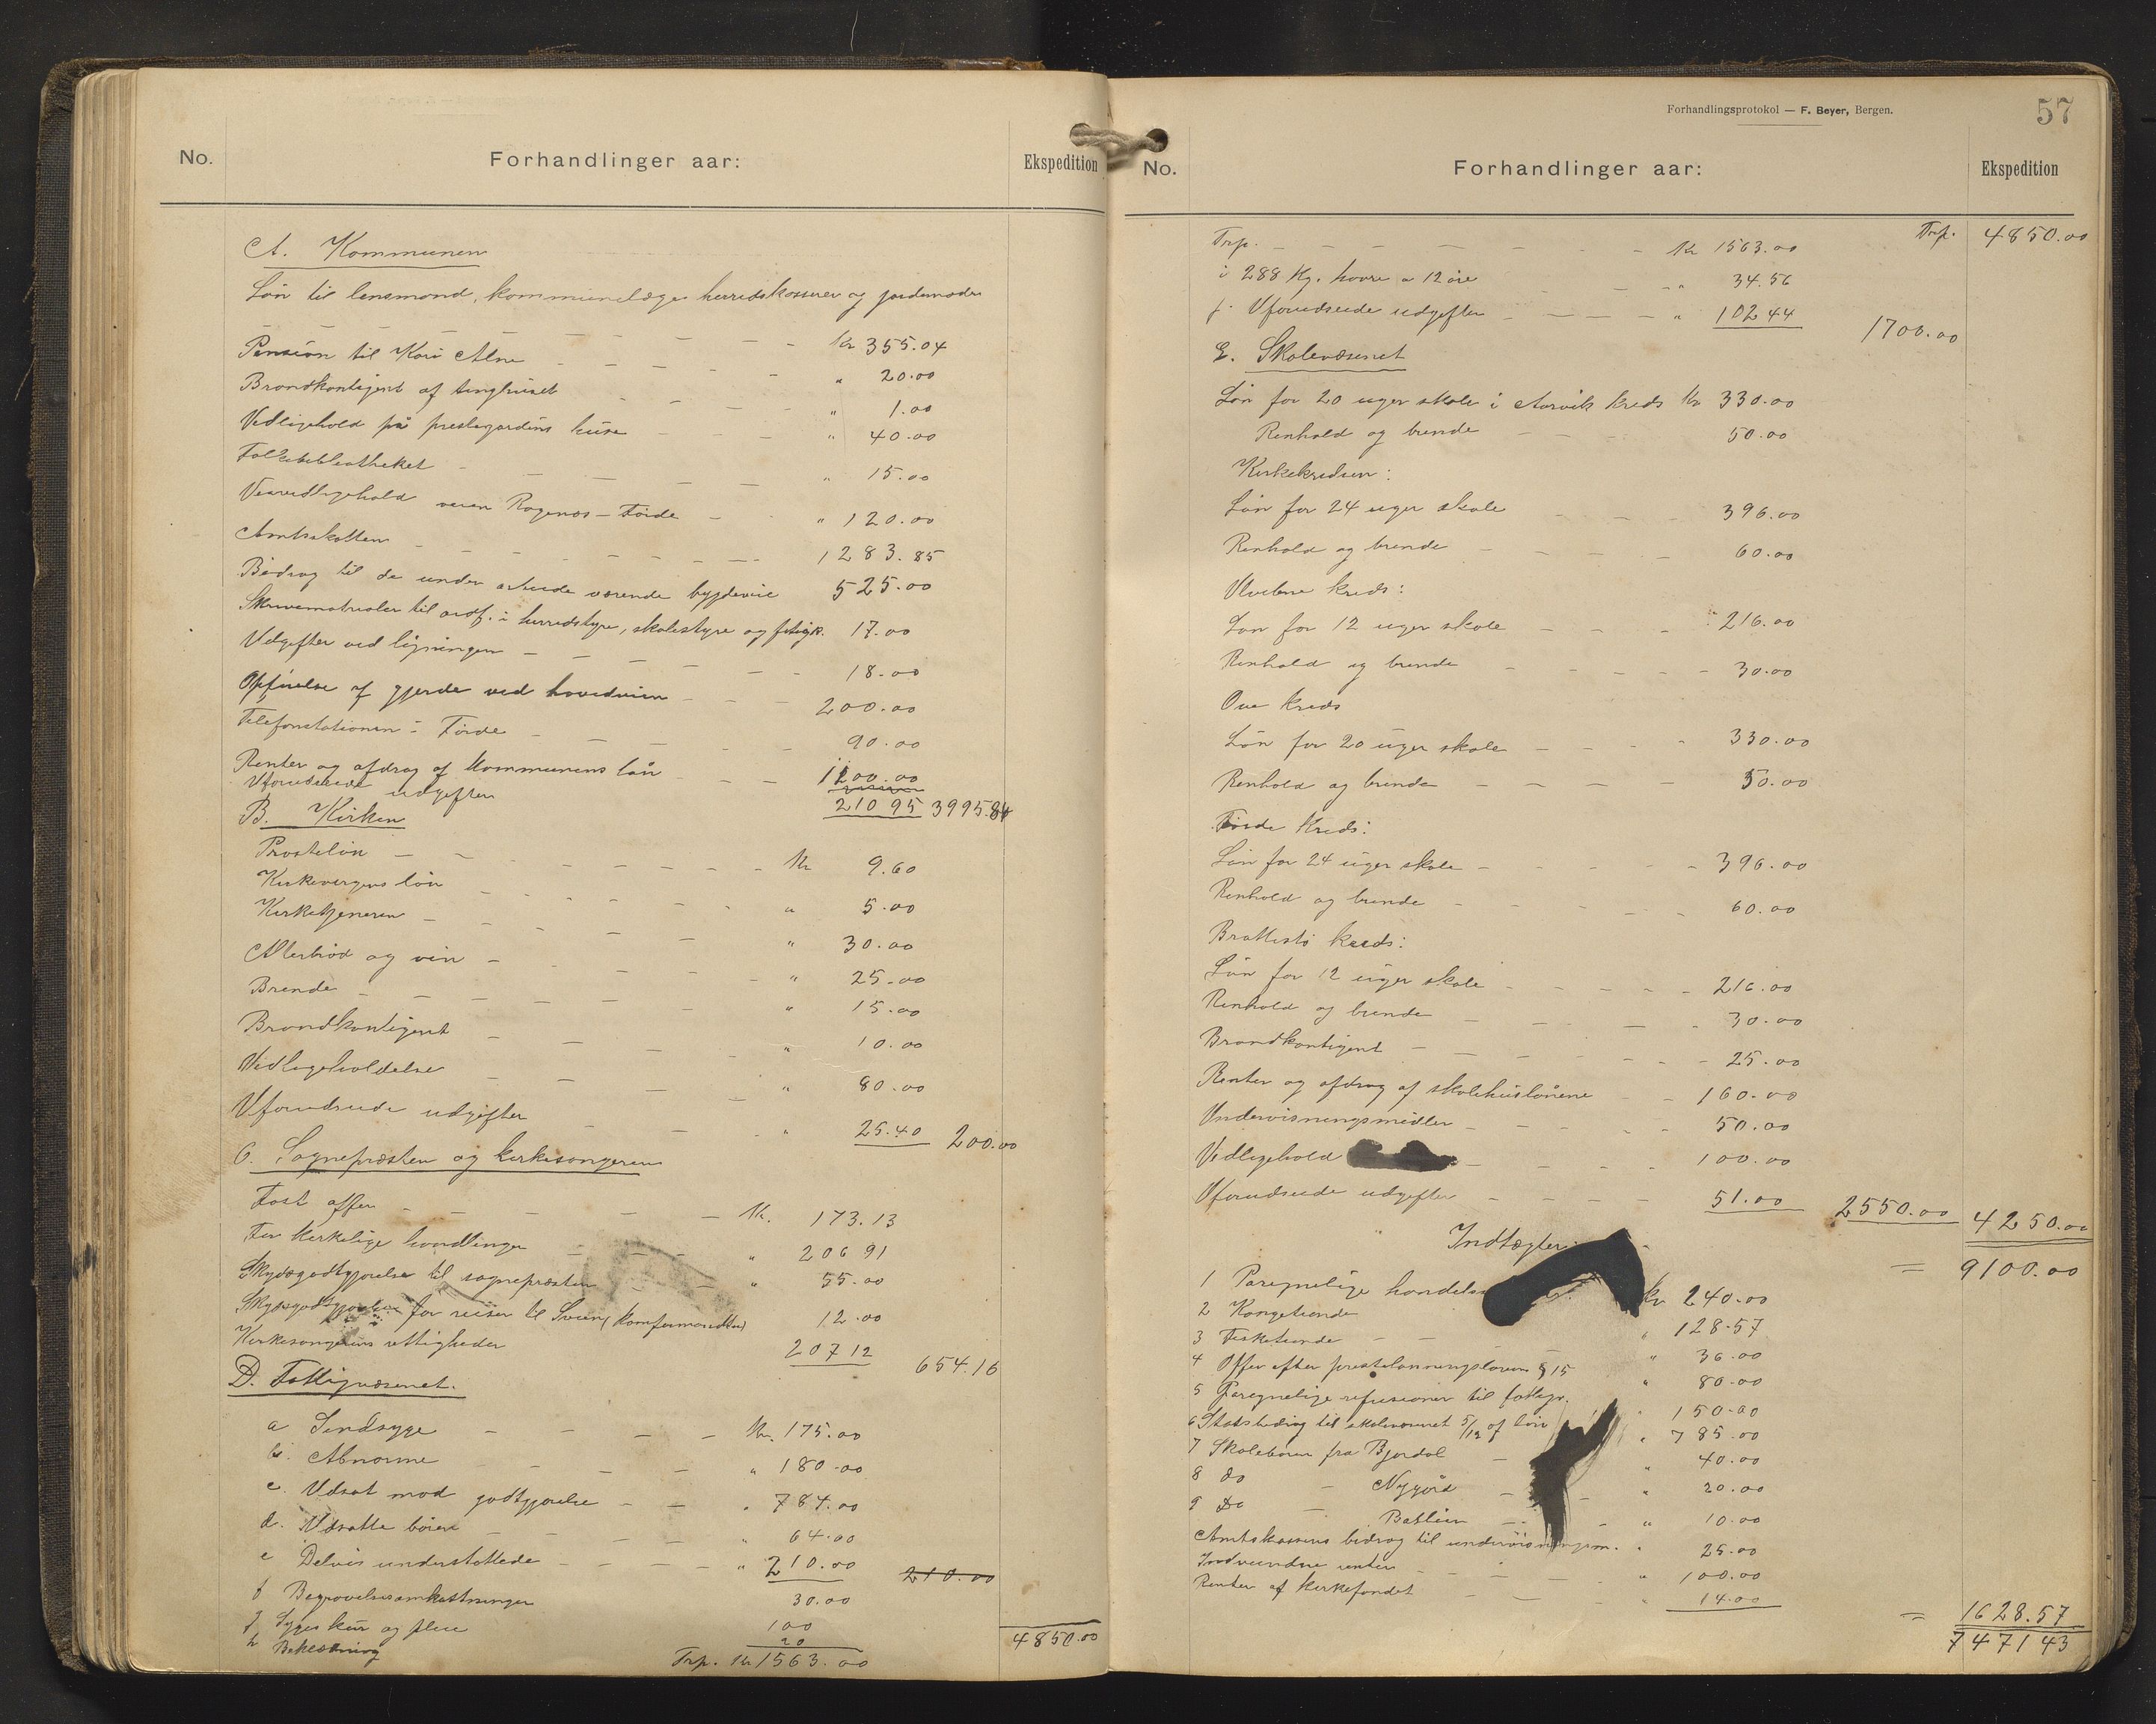 No.
Forhandlinger aar:
Ekspedition
A. Kommunen
Løn til lensmand, kommunelæge herredskasserer og jordemoder
Kr 355.04
Pension til Kari Alne " 20.00
Brandkontigent af tinghuset " 1.00
Vedligehold på prestegardens huse " 40.00
Folkebibliotheket " 15.00
Veivedligehold veien Ragenæs - Förde " 120.00
Amtsskatten 1283.85
Bidrag til de under arbeide værende bygdeveie 525.00
Skrivematrialer til ordf. i herredstyre, skolestyre og fatigk. 17.00
Udgifter ved ligningen 18.00
Opförelse af gjerde ved hovedveien 200.00
Telefonstationen i Förde 90.00
Renter og afdrag af Kommunens lån 1100.00
Uforudseede udgifter 210 95 3995.84
B. Kirken
Prosteløn Kr 9.60
Kirkevergens løn " 5.00
Kirketjeneren " 30.00
Alterbrød og vin " 25.00
Brende " 15.00
Brandkontigent " 10.00
Vedligeholdelse " 80.00
Uforudseede udgifter " 25.40 200.00
C. Sognepræsten og kirkesangeren
Fast offer Kr. 173.13
For kirkelige handlinger " 206 91
Skydsgodtgjørelse til sognepræsten " 55.00
Skydsgodtgjørelse for reiser til Sveen (konfirmanther) 12.00
Kirkesangerens rettigheder 207 12 654.16
D. Fattigvæsenet.
a Sindsyge Kr. 175.00
b. Abnorme " 180.00
c. Udsat mod godtgjørelse " 784.00
d. Udsatte børn " 64.00
e Delvis understøttede " 210.00 210.00
f Begravelsesomkostninger 30.00
g Syges kur og pleie 100
h Bekledning 20
4850.00
Trp. Kr 1563.00
Forhandlingsprotokol — F. Beyer, Bergen.
57
No.
Forhandlinger aar:
Ekspedition
Trp. 4850.00
Trp. Kr 1563.00
i 288 Kg. havre a 12 öre " 34.56
j. Uforudseede udgifter " 102 44 1700.00
E. Skolevæsenet
Løn for 20 uger skole i Aarvik kreds Kr 330.00
Renhold og brende 50.00
Kirkekredsen:
Løn for 24 uger skole 396.00
Renhold og brende 60.00
Ulvebne kreds:
Løn for 12 uger skole 216.00
Renhold og brende 30.00
Ove kreds
Løn for 20 uger skole 330.00
Renhold og brende 50.00
Förde kreds:
Løn for 24 uger skole 396.00
Renhold og brende 60.00
Brattestö kreds:
Løn for 12 uger skole 216.00
Renhold og brende 30.00
Brandkontigent 25.00
Renter og afdrag af skolehuslånene 160.00
Undervisningsmidler 50.00
Vedligehold 100.00
Uforudseede udgifter 51.00 2550.00 4250.00
Indtægter:
= 9100.00
1 Paregnelige handels kr 240.00
2 Kongetiende " 128.57
3 Fisketiende " 36.00
4 Offer efter prestelønningsloven § 15 " 80.00
5 Paregnelige refusioner til fattigv. " 150.00
6 Statsbidrag til skolevæsenet 5/12 af løn " 785.00
7 Skoleboren fra Bjordal 40.00
8 do - Nygård " 20.00
9 Do - Batlein " 10.00
Amtskassens bidrag til undervisningsm. " 25.00
Indvundne renter " 100.00
Renter af kirkefondet " 14.00
= 1628.57
7471 43